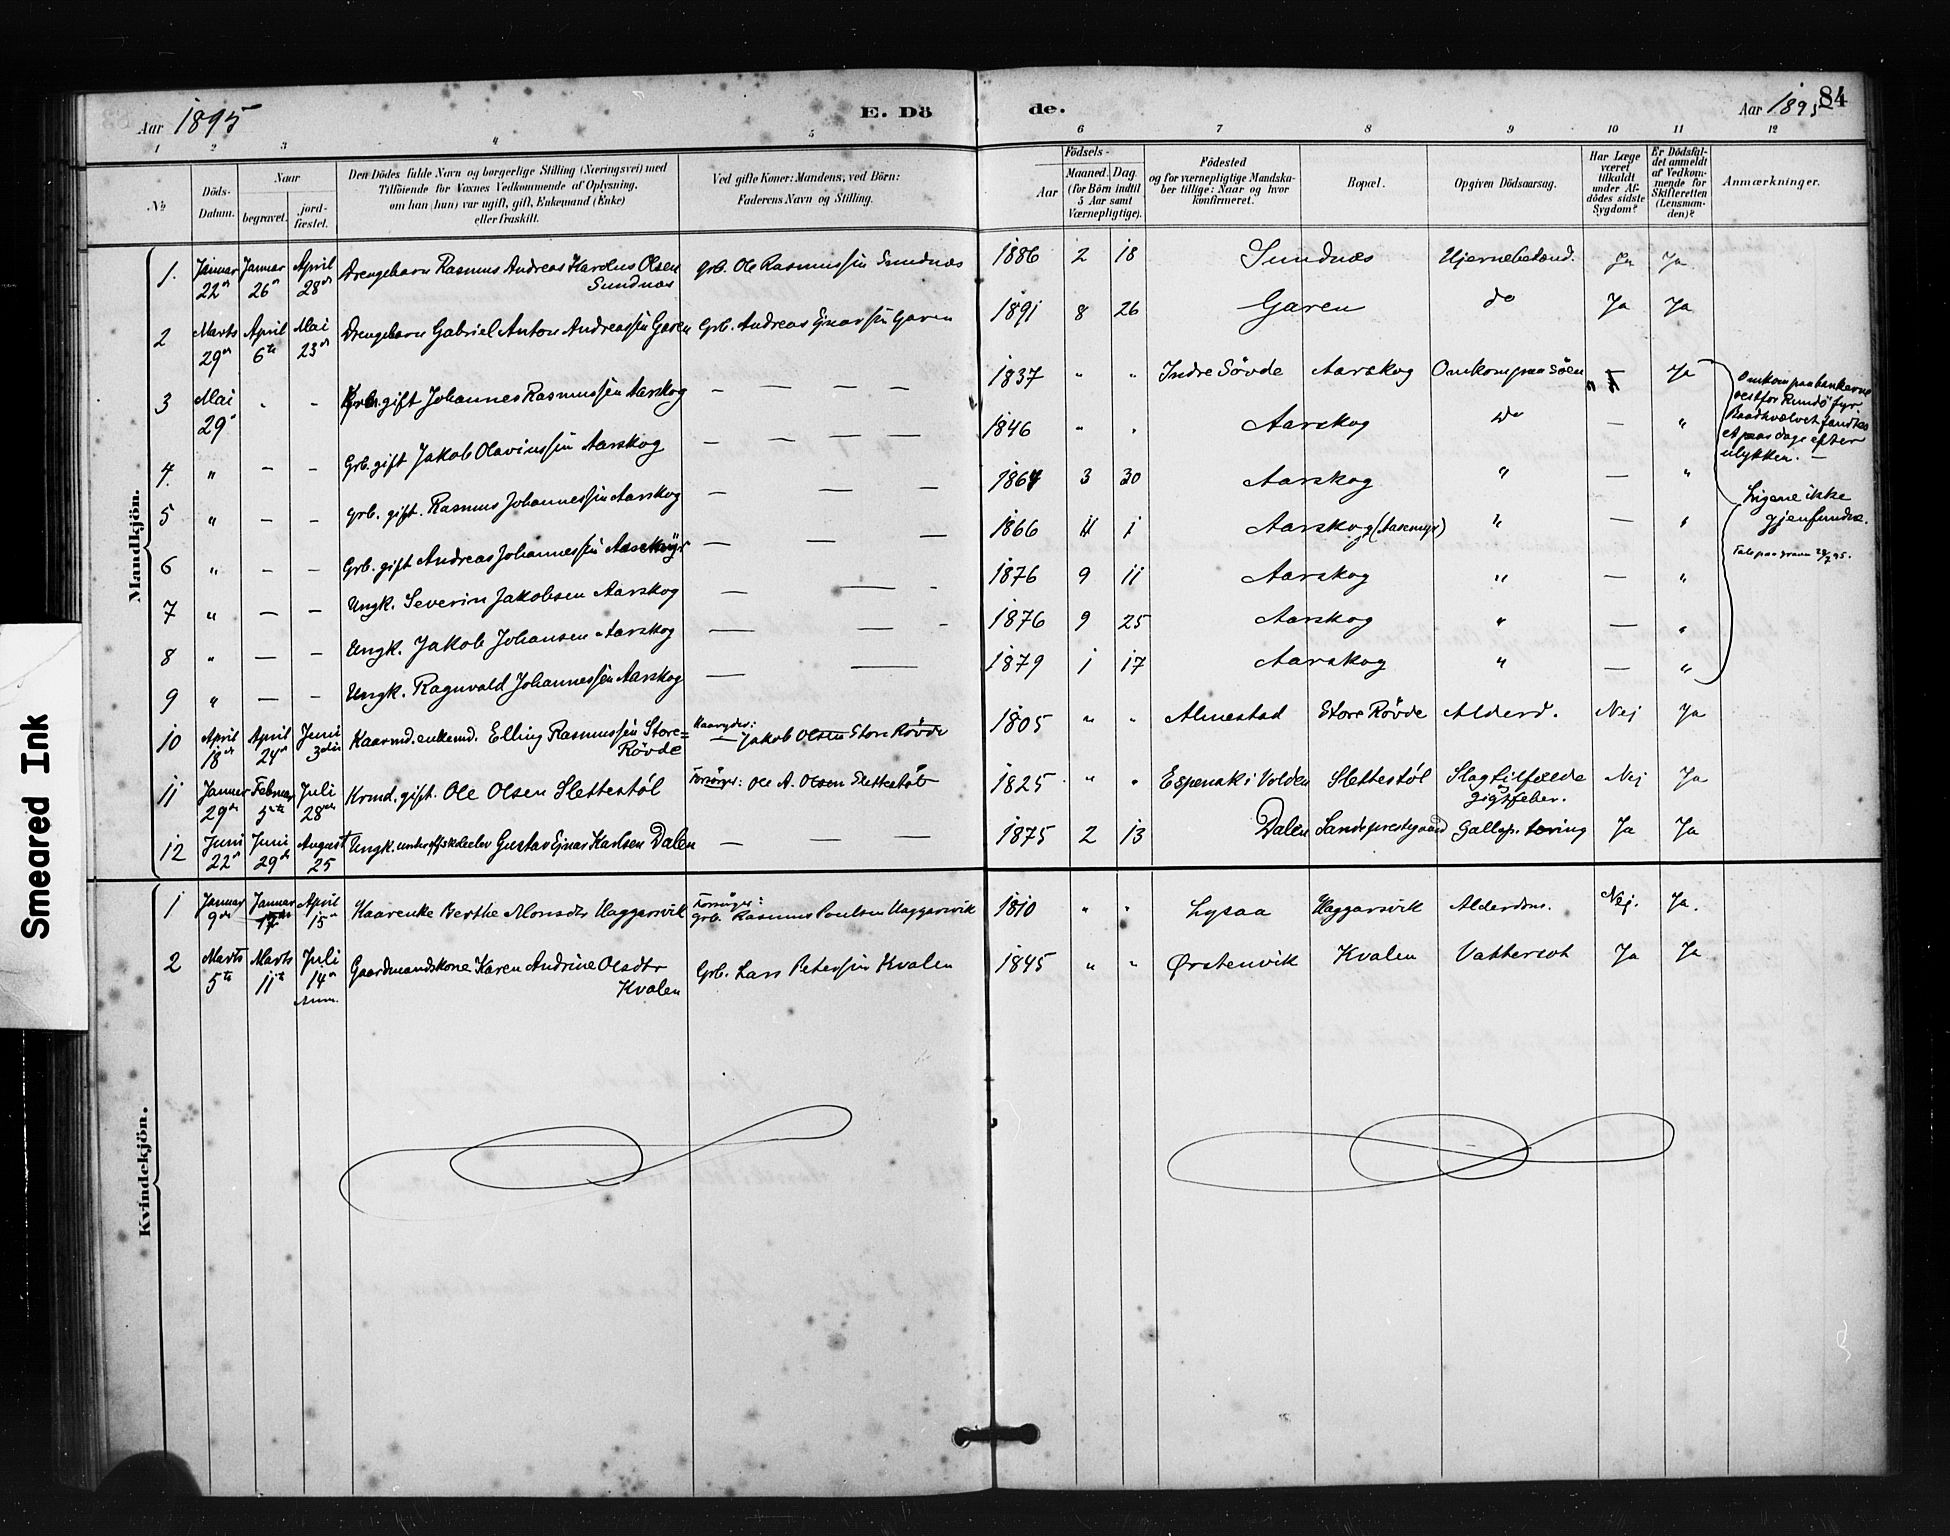 Aar 1895
E. Dö
de.
Aar 1895
84
1 2 3 4 5 6 7 8 9 10 11 12
№
Döds-Datum.
Naar
begravet.
jord-fæstet.
Den Dödes fulde Navn og borgerlige Stilling (Næringsvei) med
Tilföiende for Voxnes Vedkommende af Oplysning,
om han (hun) var ugift, gift, Enkemand (Enke)
eller fraskilt.
Ved gifte Koner: Mandens, ved Börn:
Faderens Navn og Stilling.
Födsels-
Aar
Maaned. Dag.
(for Börn indtil
5 Aar samt
Værnepligtige).
Födested
og for værnepligtige Mandska-
ber tillige: Naar og hvor
konfirmeret.
Bopæl.
Opgiven Dödsaarsag.
Har Læge
været
tilkaldt
under Af-
dödes sidste
Sygdom?
Er Dödsfal-
det anmeldt
af Vedkom-
mende for
Skifteretten
(Lensman-
den)?
Anmærkninger.
Mandkjön.
1. Januar 22 Januar 26 April 28 Drengebarn Rasmus Andreas Olsen Sundnæs Grb. Ole Rasmussen Sundnæs 1886 2 18 Sundnæs Hjernebetænd. Ja Ja
2 Marts 29 April 6te Mai 23 Drengebarn Gabriel Anton Andreassen Garen Grb. Andreas Ejnarssen Garen 1891 8 26 Garen do Ja Ja
3 Mai 29 - - Grb. gift Johannes Rasmussen Aarskog — — — — 1837 " " Indre Sövde Aarskog Omkom paa söen — Ja
4. " — — Grb. gift Jakob Olavinssen Aarskog — — — — 1846 " " Aarskog do — "
5 " — — Grb. gift. Rasmus Johannessen Aarskog — — — 1864 3 30 Aarskog " — "
6 " — — Grb. gift Andreas Johannessen Aasemyr — — — 1866 11 1 Aarskog (Aasemyr) " — "
7 " — — Ungk. Severin Jakobsen Aarskog — — - 1876 9 11 Aarskog " — "
8 " — — Ungk. Jakob Johansen Aarskog — — - 1876 9 25 Aarskog " — "
9 " — — Ungk. Ragnvald Johannessen Aarskog — — 1879 1 17 Aarskog " — "
Omkom paa bankerne
vest for Rundö fyr.
Baadhvælvet fandtes
et paar dage efter
ulykken. —
Ligene ikke
gjenfundne.
10 April 18de April 24 Juni 3die Kaarmd. enkemd. Elling Rasmussen Store-Rövde Kaaryder: Jakob Olsen Store Rövde 1805 " " Almestad Store Rövde Alderd. Nej Ja
11 Januar 29de Februar 5te Juli 28 Krmd. gift. Ole Olsen Slettestöl Forsörger: Ole A. Olsen Slettestöl 1825 " " Espenak i Volden Slettestöl Slagtilfælde og gigtfeber. Nej Ja
12 Juni 22 Juni 29de August 25 Ungk. Gustav Ejnar Karlsen Dalen — — — 1875 2 13 Dalen Gallop. tæring Ja Ja
Kvindekjön.
1 Januar 9de Januar 17 April 15 Kaarenke Berthe Monsdtr Haggarsvik Forsörger: Grb. Rasmus Poulsen Haggarsvik 1810 " " Lysaa Haggarsvik Alderdom. Nej. Ja.
2 Marts 5te Marts 11te Juli 14 Gaardmandskone Karen Andrine Olsdtr Kvalen Grb. Lars Peterssen Kvalen 1845 " " Ørstenvik Kvalen Vattersot Ja Ja
Smeared Ink